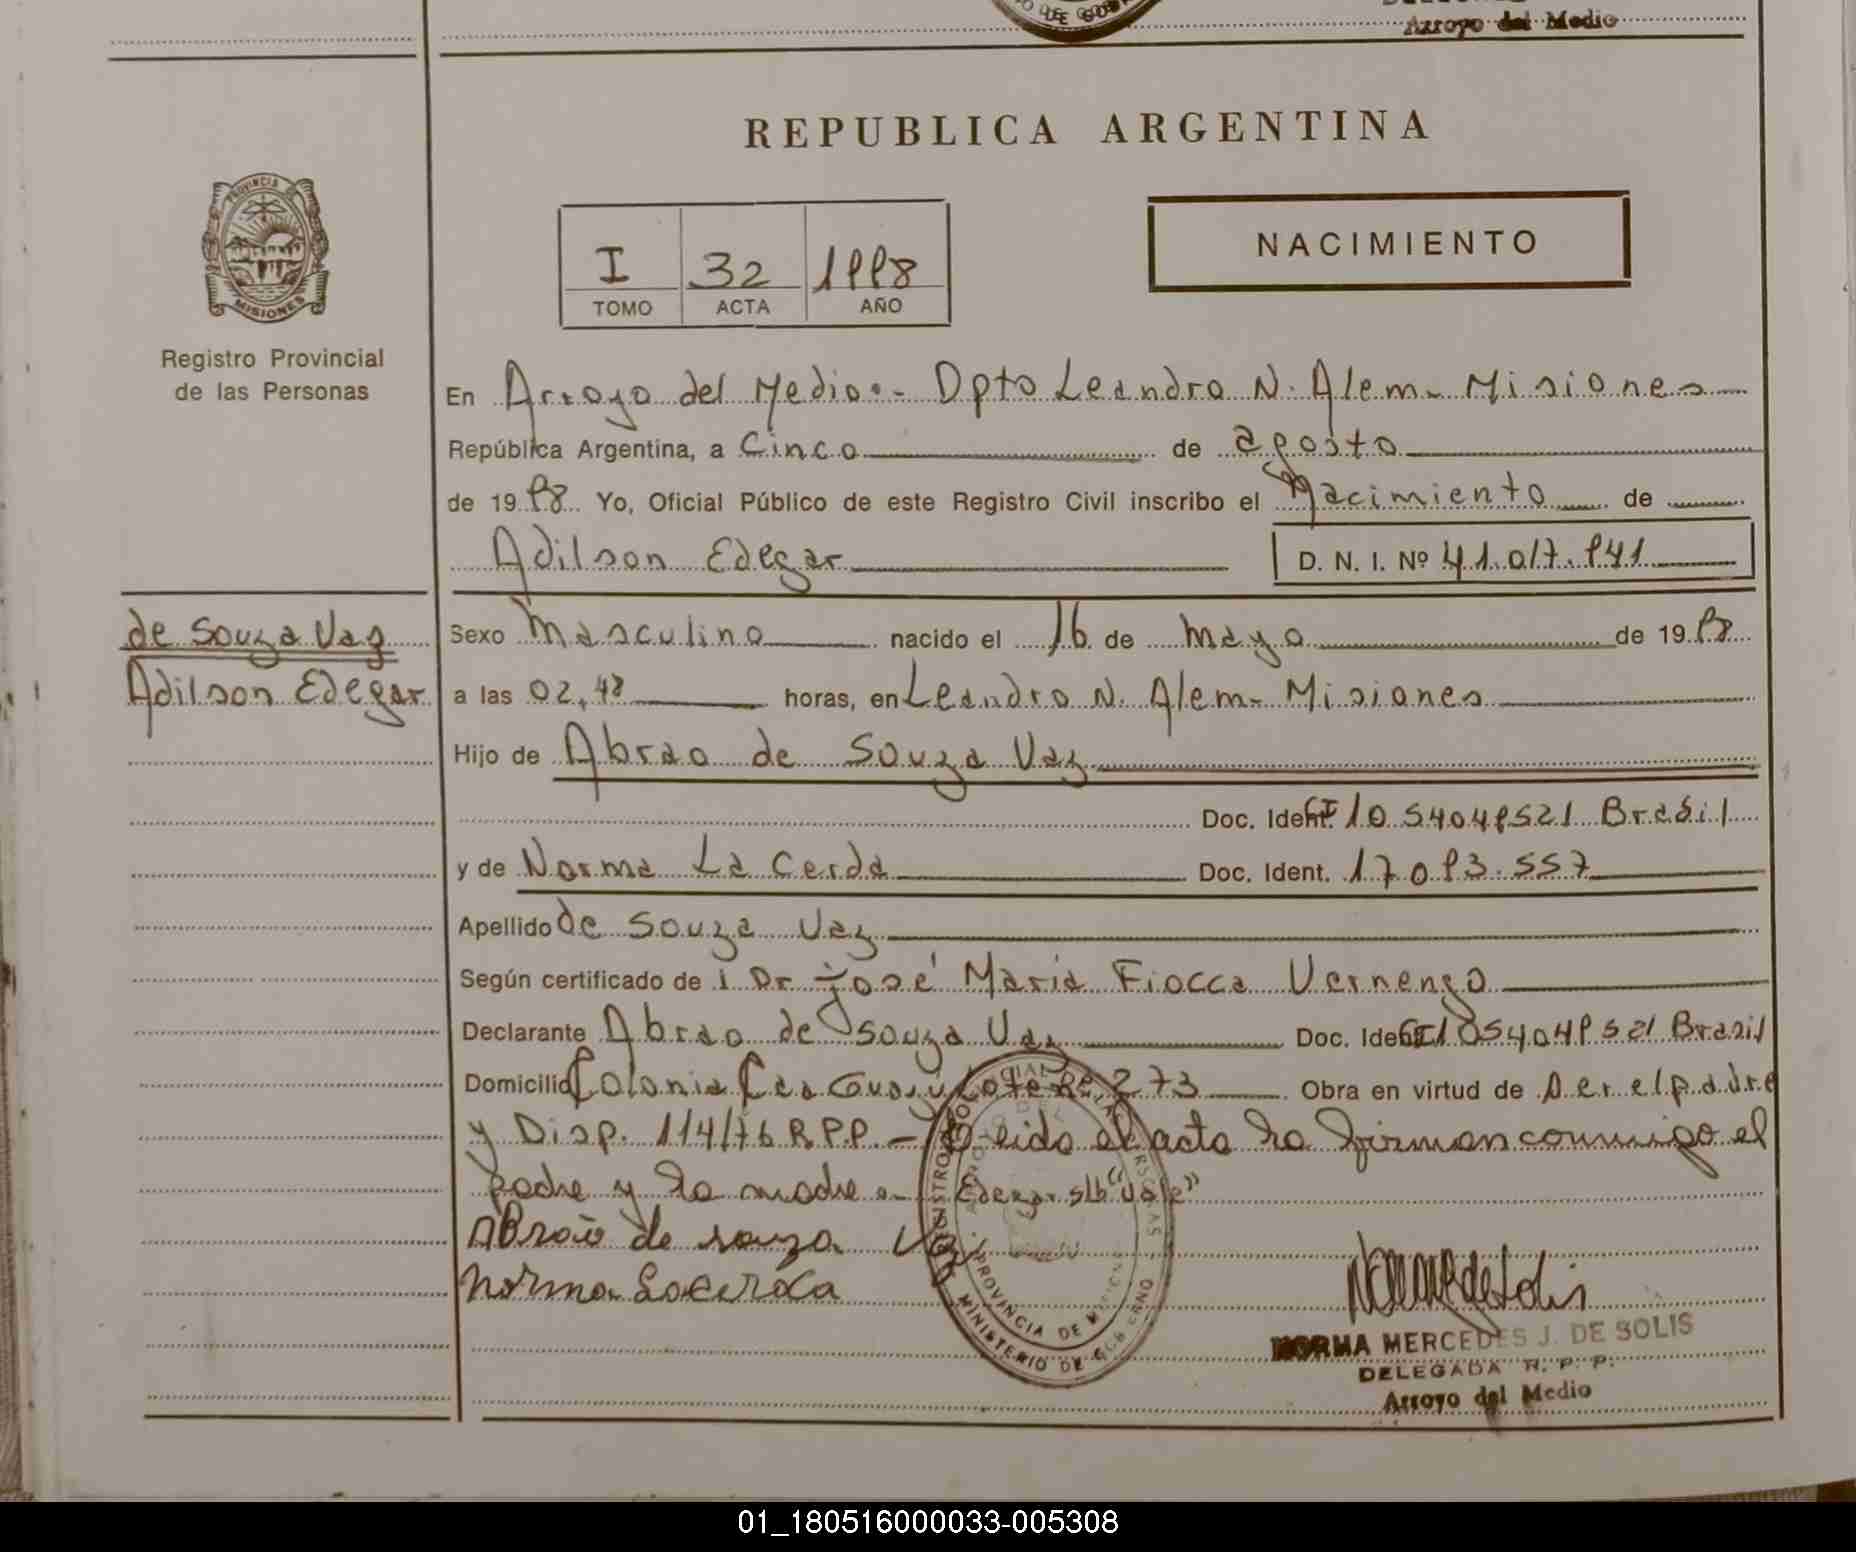 Arroyo del Medio
REPUBLICA ARGENTINA
PROVINCIA DE
MISIONES
Registro Provincial
de las Personas
I 32 1998
TOMO ACTA AÑO
NACIMIENTO
En Arroyo del Medio.- Dpto Leandro N. Alem- Misiones
República Argentina, a Cinco de agosto
de 1998 Yo, Oficial Público de este Registro Civil inscribo el Nacimiento de
Adilson Edegar D. N. I. Nº 41.017.941
de Souza Vaz
Adilson Edegar
Sexo Masculino nacido el 16 de Mayo de 1998
a las 02,48 horas, en Leandro N. Alem- Misiones
Hijo de Abrao de Souza Vaz
Doc. Ident. CI 1054049521 Brasil
y de Norma La Cerda Doc. Ident. 17093.557
Apellido de Souza Vaz
Según certificado de l Dr José Maria Fiocca Vernengo
Declarante Abrao de Souza Vaz Doc. Ident. CI 1054049521 Brasil
Domicilio Colonia Caa Guazú Lote Nº 273 Obra en virtud de Ser el padre
y Disp. 114/76 R.P.P. - Leido el acta la firman conmigo el
padre y la madre.- Edegar s/b "vale"
Abraõ de souza Vaz
Norma Lacerda
REGISTRO PROVINCIAL DE LAS PERSONAS
PROVINCIA DE MISIONES
MINISTERIO DE GOBIERNO
NORMA MERCEDES J. DE SOLIS
DELEGADA R. P. P.
Arroyo del Medio
01_180516000033-005308